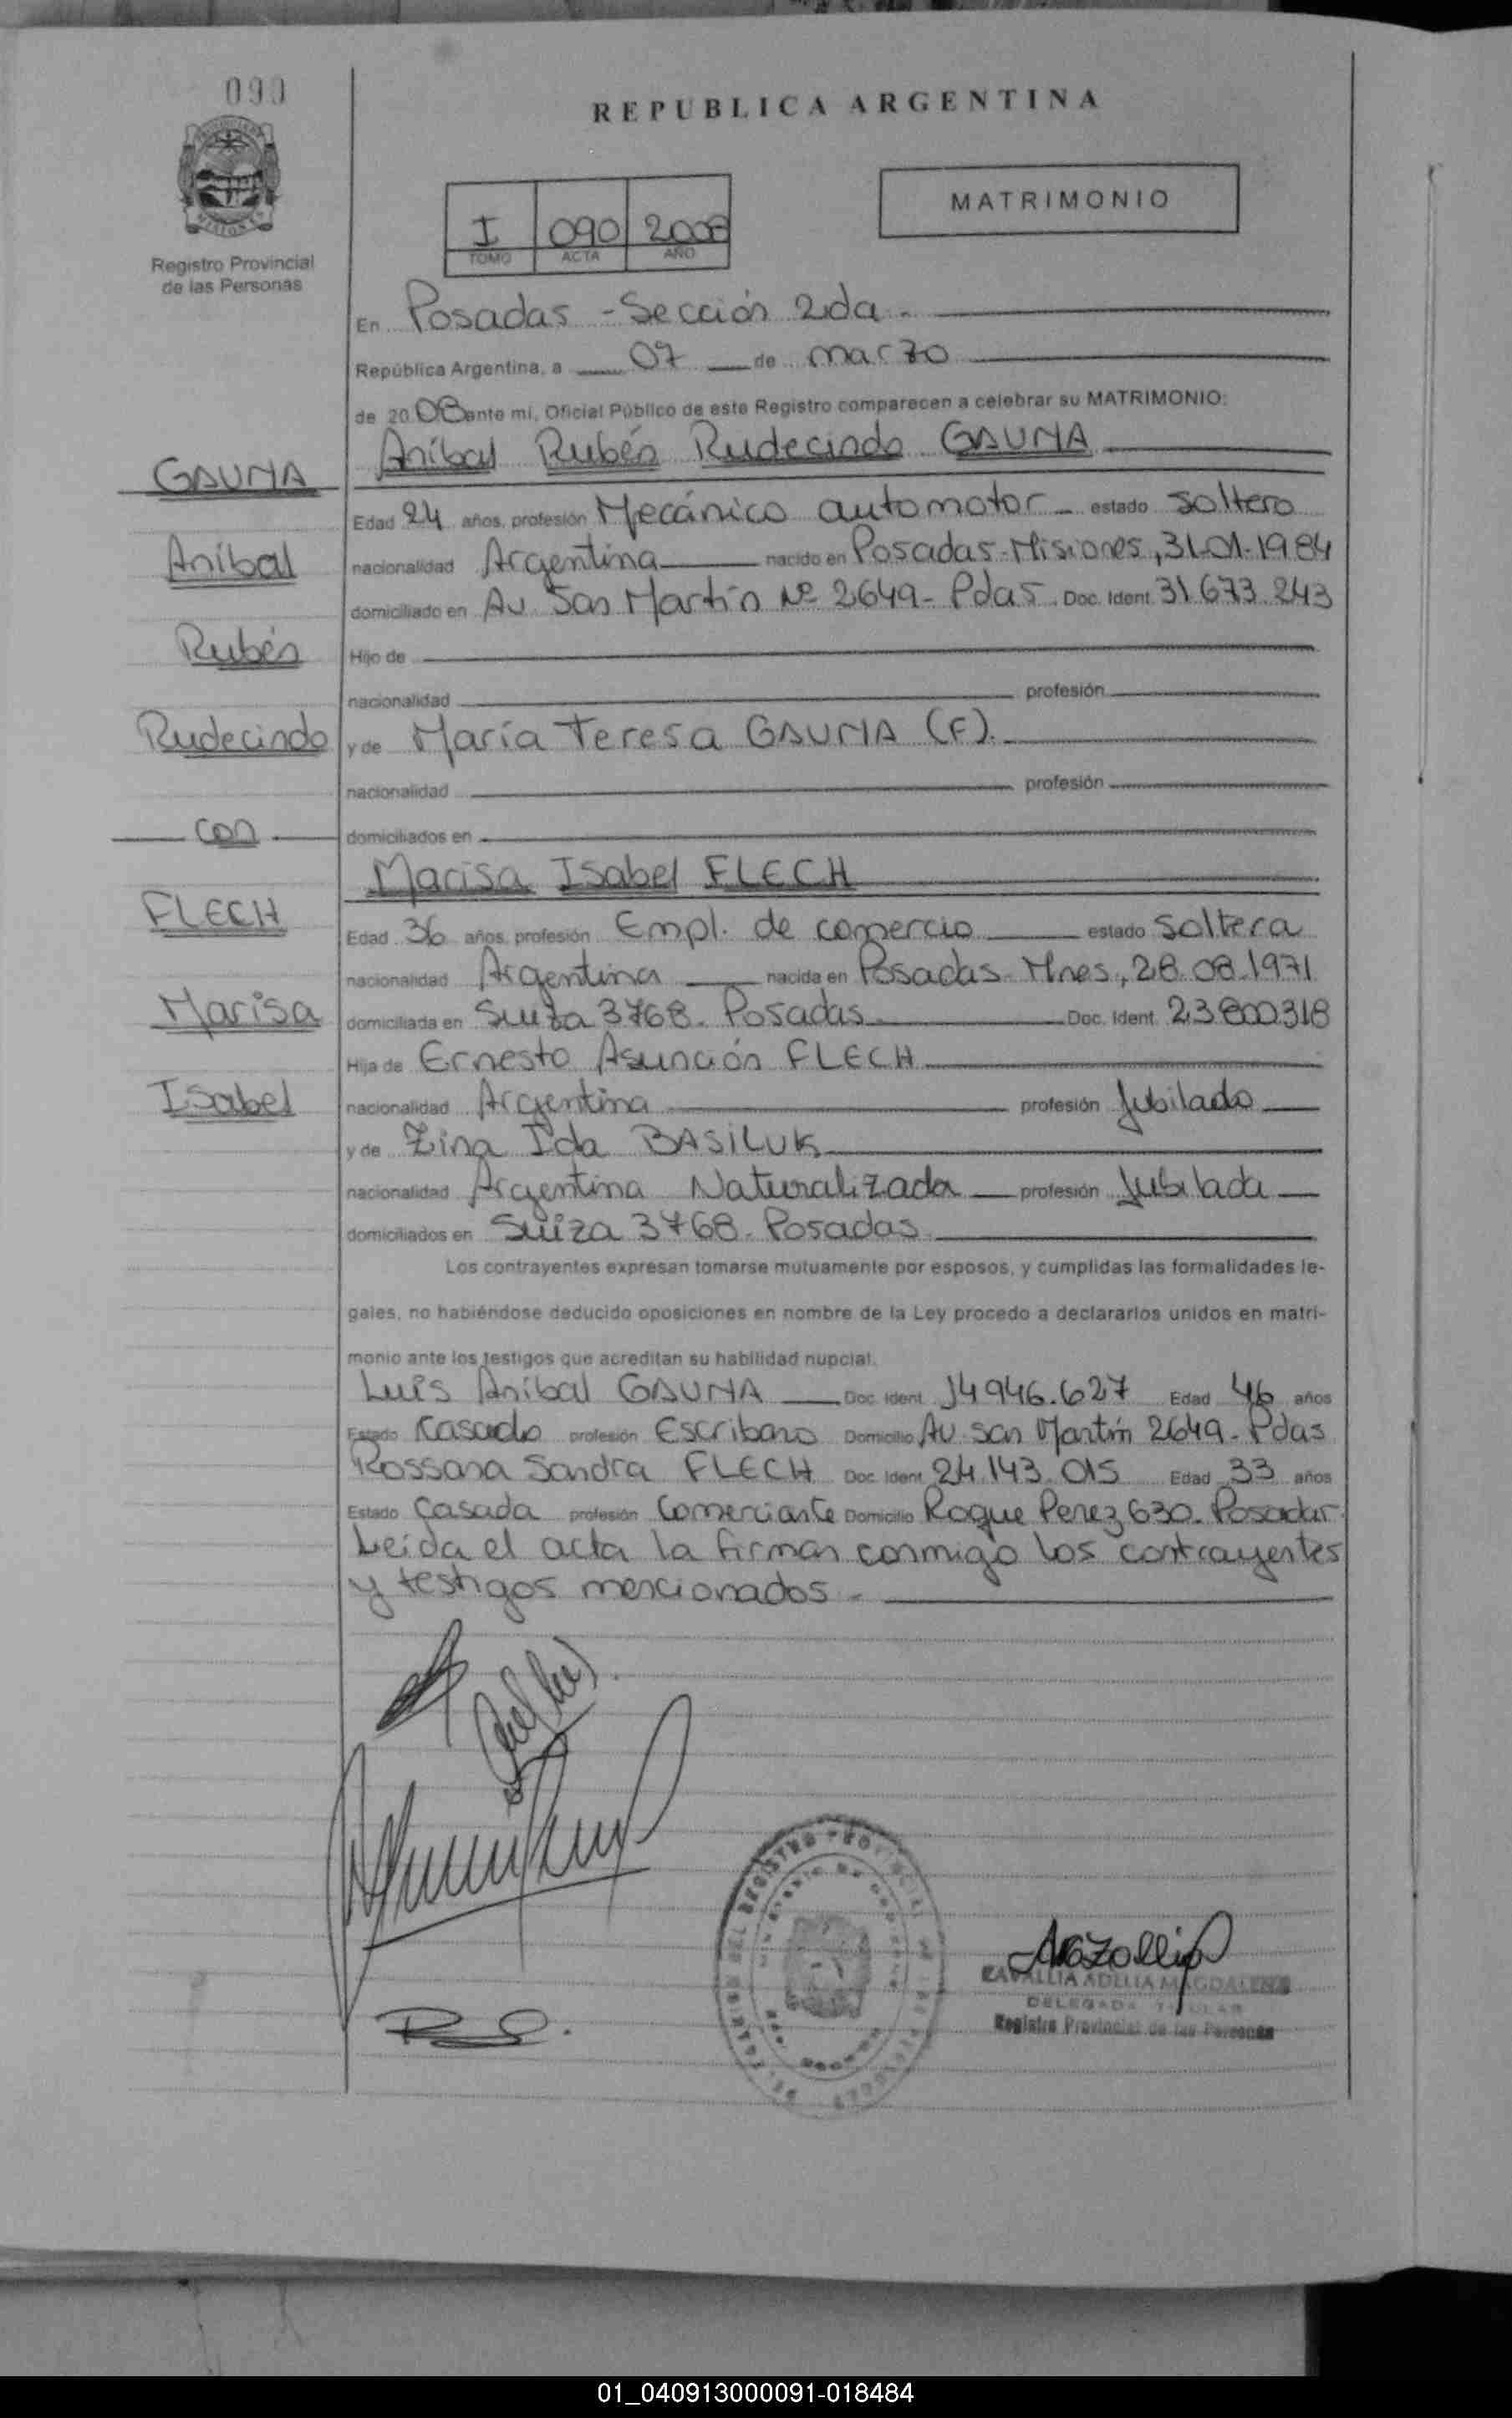 090
REPUBLICA ARGENTINA
MATRIMONIO
I 090 2008
TOMO ACTA AÑO
Registro Provincial
de las Personas
En Posadas - Sección 2da.
República Argentina, a 07 de marzo
de 2008 ante mí, Oficial Público de este Registro comparecen a celebrar su MATRIMONIO:
Aníbal Rubén Rudecindo GAUNA
GAUNA
Edad 24 años, profesión Mecánico automotor - estado soltero
Aníbal
nacionalidad Argentina nacido en Posadas-Misiones, 31-01-1984
domiciliado en Av. San Martín Nº 2649- Pdas. Doc. Ident. 31.673.243
Rubén
Hijo de
nacionalidad profesión
Rudecindo
y de María Teresa GAUNA (F).
nacionalidad profesión
con
domiciliados en
Marisa Isabel FLECH
FLECH
Edad 36 años, profesión Empl. de comercio estado soltera
nacionalidad Argentina nacida en Posadas-Mnes, 28.08.1971
Marisa
domiciliada en Suiza 3768. Posadas. Doc. Ident. 23800318
Hija de Ernesto Asunción FLECH
Isabel
nacionalidad Argentina profesión Jubilado
y de Zina Ida BASILUK
nacionalidad Argentina Naturalizada profesión Jubilada
domiciliados en Suiza 3768. Posadas.
Los contrayentes expresan tomarse mutuamente por esposos, y cumplidas las formalidades le-
gales, no habiéndose deducido oposiciones en nombre de la Ley procedo a declararlos unidos en matri-
monio ante los testigos que acreditan su habilidad nupcial.
Luis Aníbal GAUNA Doc. Ident. 14946.627 Edad 46 años
Estado Casado profesión Escribano Domicilio Av. San Martín 2649- Pdas
Rossana Sandra FLECH Doc. Ident. 24.143.015 Edad 33 años
Estado Casada profesión Comerciante Domicilio Roque Perez 630. Posadas.
Leída el acta la firman conmigo los contrayentes
y testigos mencionados.-
ZAVALLIA ADELIA MAGDALENA
DELEGADA TITULAR
Registro Provincial de las Personas
01_040913000091-018484